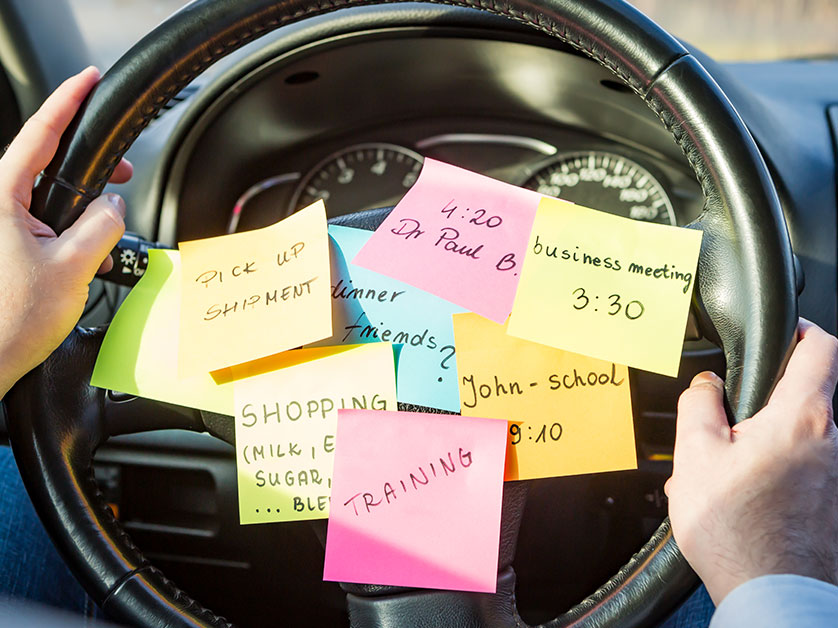 4:20
Dr Paul B.
business meeting
3:30
PICK UP
SHIPMENT
dinner
friends?
John - school
9:10
SHOPPING
(MILK, E
SUGAR,
... BLE
TRAINING